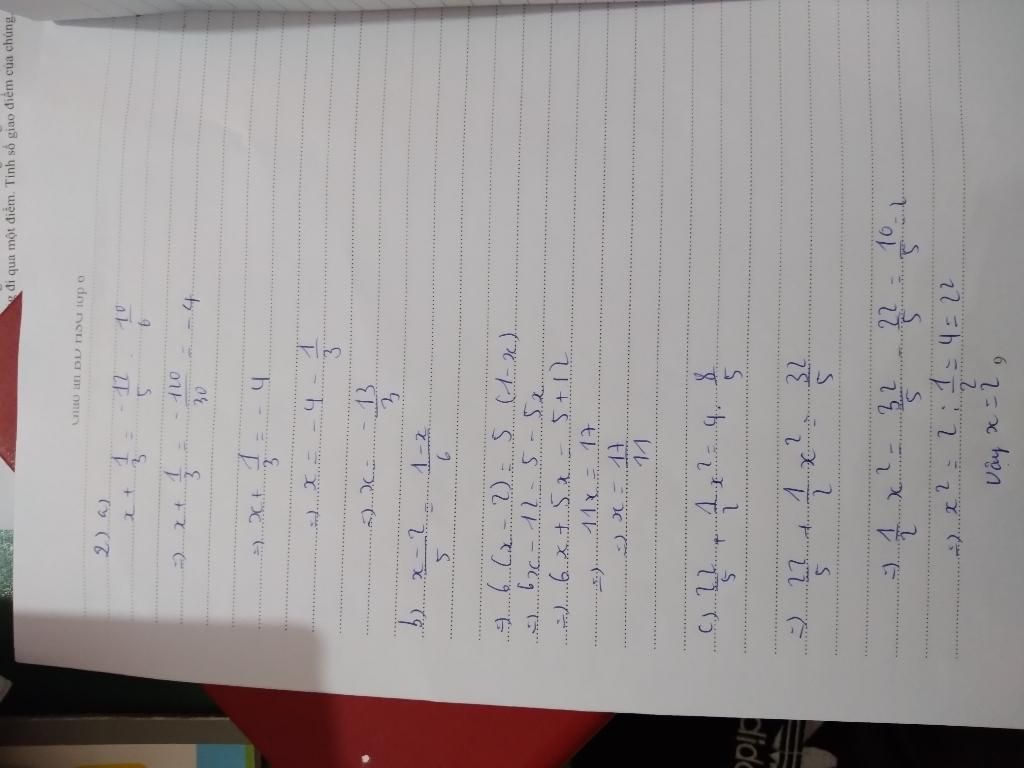 g đi qua một điểm. Tính số giao điểm của chúng
Giáo án BD HSG lớp 6
2) a)
x + 1/3 = -12/5 . 10/6
=) x + 1/3 = -120/30 = -4
=) x + 1/3 = -4
=) x = -4 - 1/3
=) x = -13/3
b) x-2/5 = 1-x/6
=) 6(x-2) = 5(1-x)
=) 6x-12 = 5-5x
=) 6x+5x = 5+12
=) 11x = 17
=) x = 17/11
c) 22/5 + 1/2 x² = 4. 8/5
=) 22/5 + 1/2 x² = 32/5
=) 1/2 x² = 32/5 - 22/5 = 10/5 = 2
=) x² = 2 : 1/2 = 4 = 2²
Vậy x = 2
adidas